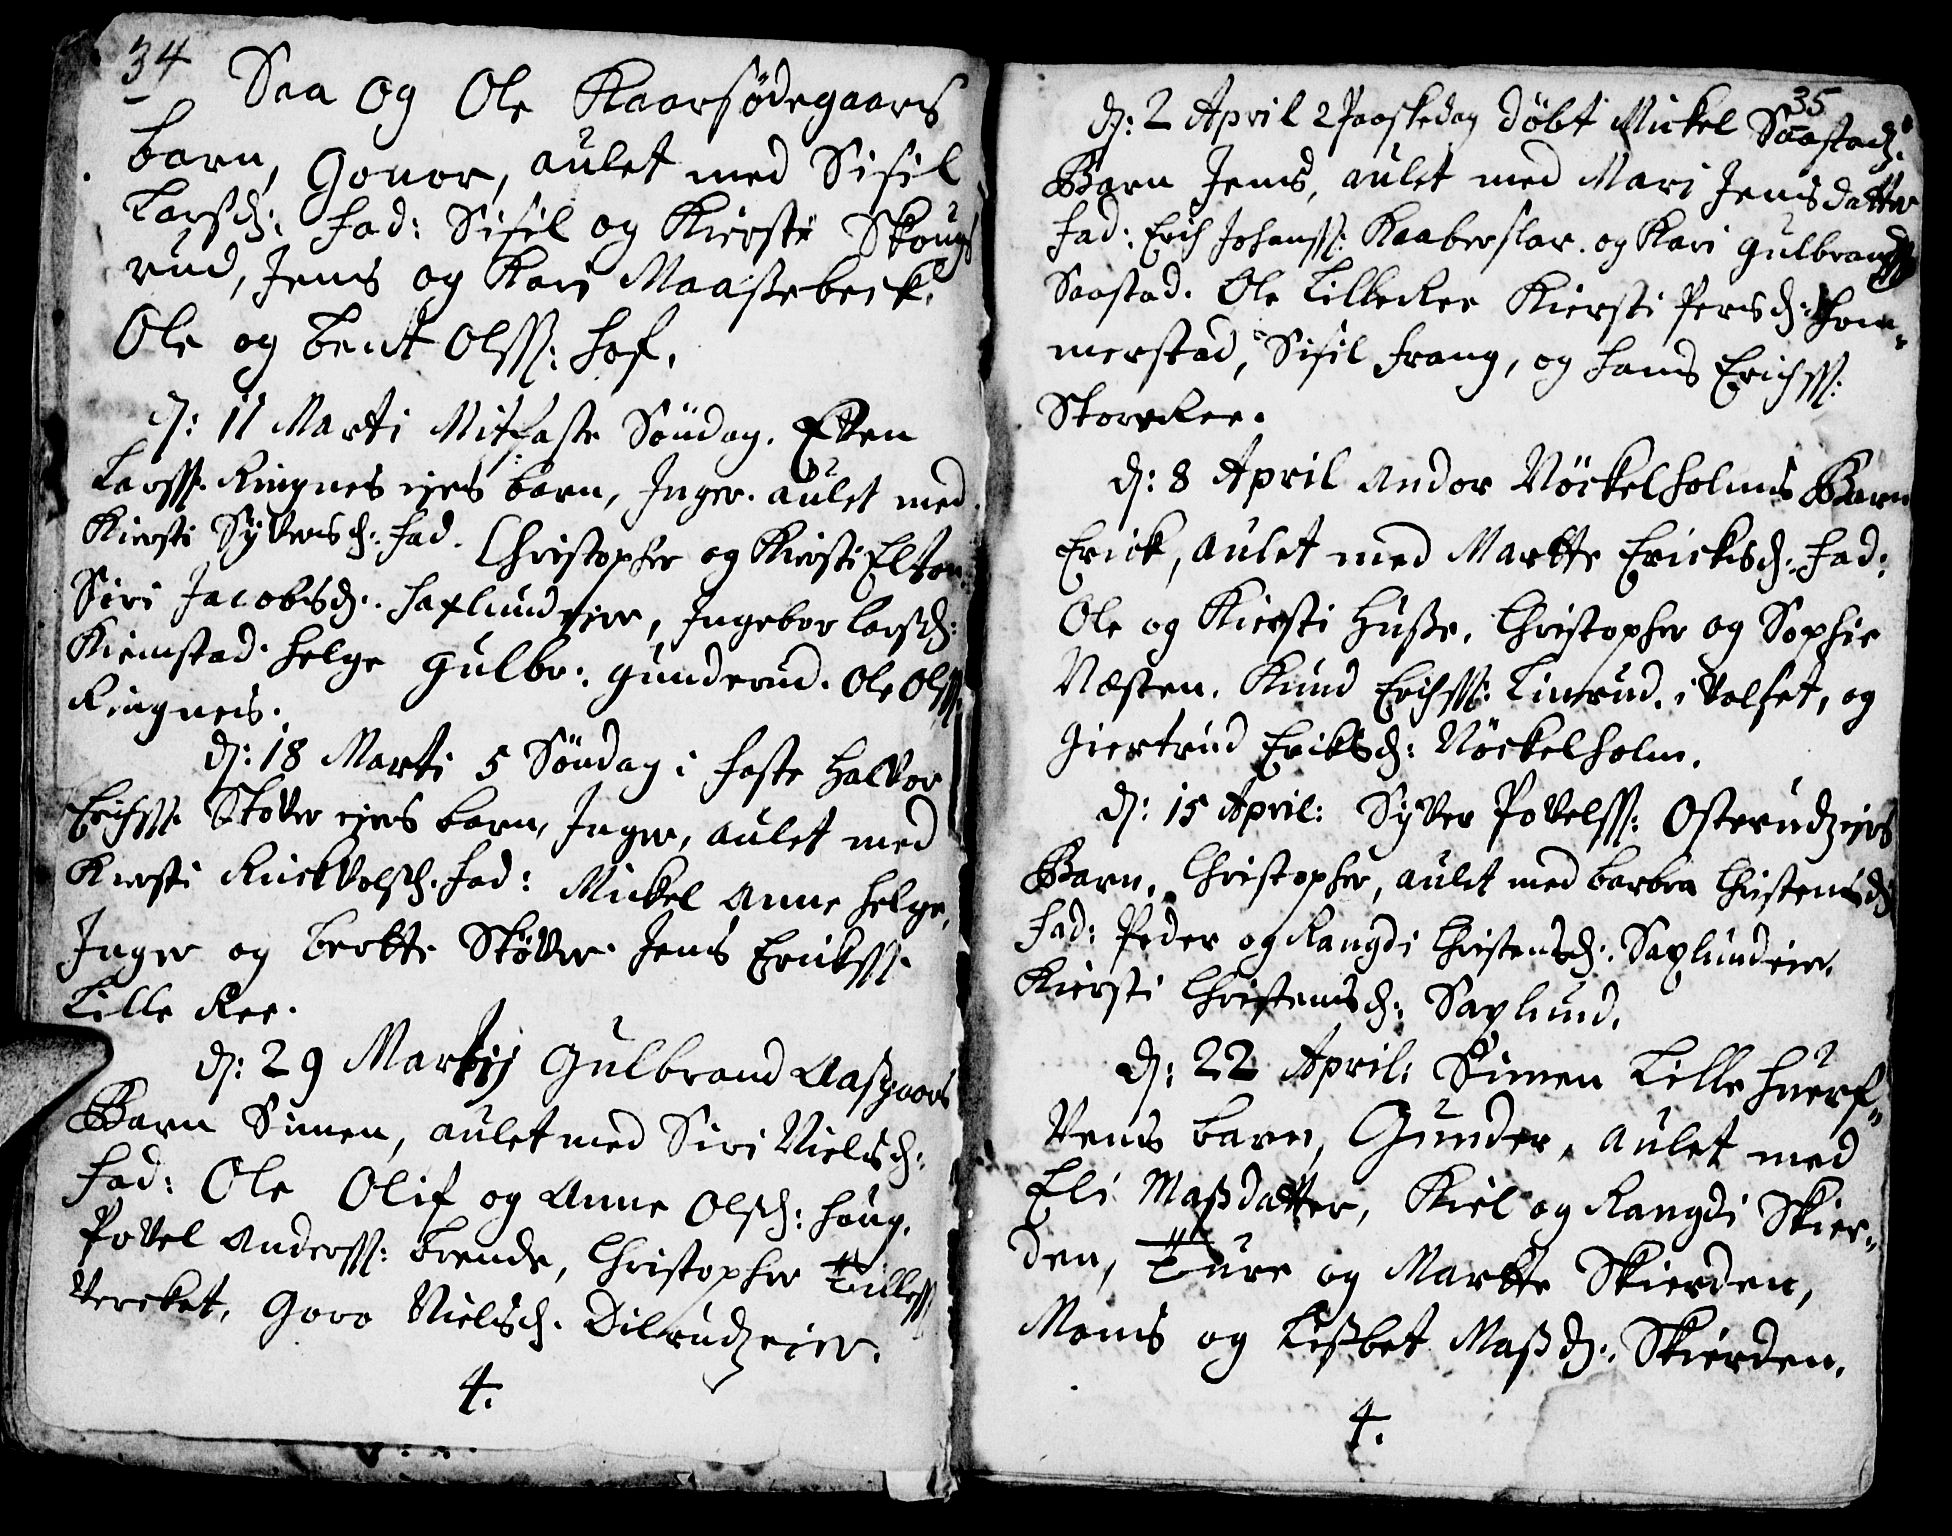 34
Saa og Ole Kaarsødegaars
barn, Gonor, aulet med Sisil
Larsd: fad: Sisil og Kiersti Skougs
rud, Jens og Kari Maaßebeck.
Ole og bendt Olss: hof.
d: 11 Marti Mitfaste Söndag. Even
Larss. Ringnes ejes barn, Inger. aulet med
Kiersti Syversd: fad. Christopher og Kiersti Elton
Siri Jacobsd: Saxlund eier, Ingebor larsd:
Kiemstad. helge Gulbr: Gunderud. Ole Olss.
Ringneis.
d: 18 Marti 5 Söndag i faste halvor
Erichss. Stöver ejes barn, Inger, aulet med
Kiersti fad: Mickel Anne helge,
Inger og berte Stöver. Jens Erickss.
Lille Ree.
d: 29 Martij Gulbrand Aaßgaars
Barn Simen, aulet med Siri Nielsd:
fad: Ole Olif og Anne Olsd: houg.
Povel Anderss: brende, Christopher Tilless:
Vercket, Goro Nielsd. Dilrudzeier.
4.
35
d: 2 April 2 Paaskedag döbt Mickel Saastadz.
Barn Jens, aulet med Mari Jensdatter
fad: Erich Johanss: Kaaberslar. og Kari Gulbrandsd
Saastad. Ole Lilleree Kiersti Persd: hom-
merstad, Sisil frang, og hans Erichss:
Storeree.
d: 8 April Andor Nöckelholms Barn
Erick, aulet med Martte Ericksd: fad:
Ole og Kiersti Huße, Christopher og Sophie
Næsten. Knud Erichss: Linerud. i Valset, og
Giertrud Eriksd: Nöckelholm.
d: 15 April: Syver Povelss: Osterudzejes
Barn, Christopher, aulet med barbra Christensd:
fad: Peder og Rangdi Christensd: Saxlundeie.
Kiersti Christensd: Saxlund.
d: 22 April: Simen Lille huerf-
vens barn, Gunder, aulet med
Eli Maßdatter, Kiel og Rangdi Skier-
den, Ture og Martte Skierden,
Mons og Lisbet Maßd: Skierden.
4.